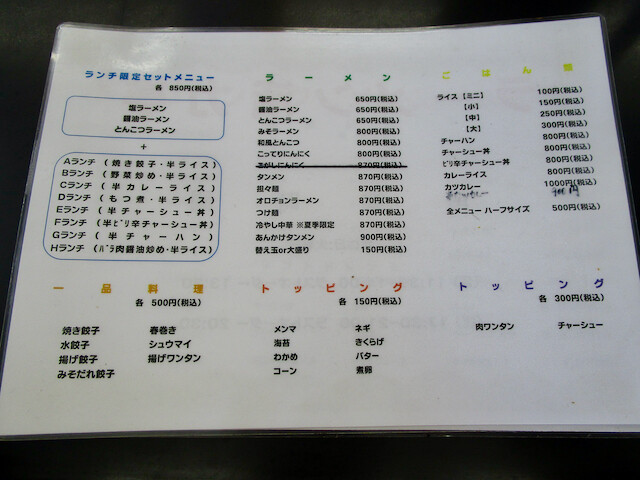 ランチ限定セットメニュー
各 850円(税込)
塩ラーメン
醤油ラーメン
とんこつラーメン
+
Aランチ (焼き餃子・半ライス)
Bランチ (野菜炒め・半ライス)
Cランチ (半カレーライス)
Dランチ (もつ煮・半ライス)
Eランチ (半チャーシュー丼)
Fランチ (半ピリ辛チャーシュー丼)
Gランチ (半チャーハン)
Hランチ (バラ肉醤油炒め・半ライス)
ラーメン
塩ラーメン 650円(税込)
醤油ラーメン 650円(税込)
とんこつラーメン 650円(税込)
みそラーメン 800円(税込)
和風とんこつ 800円(税込)
こってりにんにく 800円(税込)
こがしにんにく 870円(税込)
タンメン 870円(税込)
担々麺 870円(税込)
オロチョンラーメン 870円(税込)
つけ麺 870円(税込)
冷やし中華 ※夏季限定 870円(税込)
あんかけタンメン 900円(税込)
替え玉or大盛り 150円(税込)
ごはん類
ライス 【ミニ】 100円(税込)
【小】 150円(税込)
【中】 250円(税込)
【大】 300円(税込)
チャーハン 800円(税込)
チャーシュー丼 800円(税込)
ピリ辛チャーシュー丼 800円(税込)
カレーライス 800円(税込)
カツカレー 1000円(税込)
全メニュー ハーフサイズ 500円(税込)
一品料理
各 500円(税込)
焼き餃子 春巻き
水餃子 シュウマイ
揚げ餃子 揚げワンタン
みそだれ餃子
トッピング
各 150円(税込)
メンマ ネギ
海苔 きくらげ
わかめ バター
コーン 煮卵
トッピング
各 300円(税込)
肉ワンタン チャーシュー